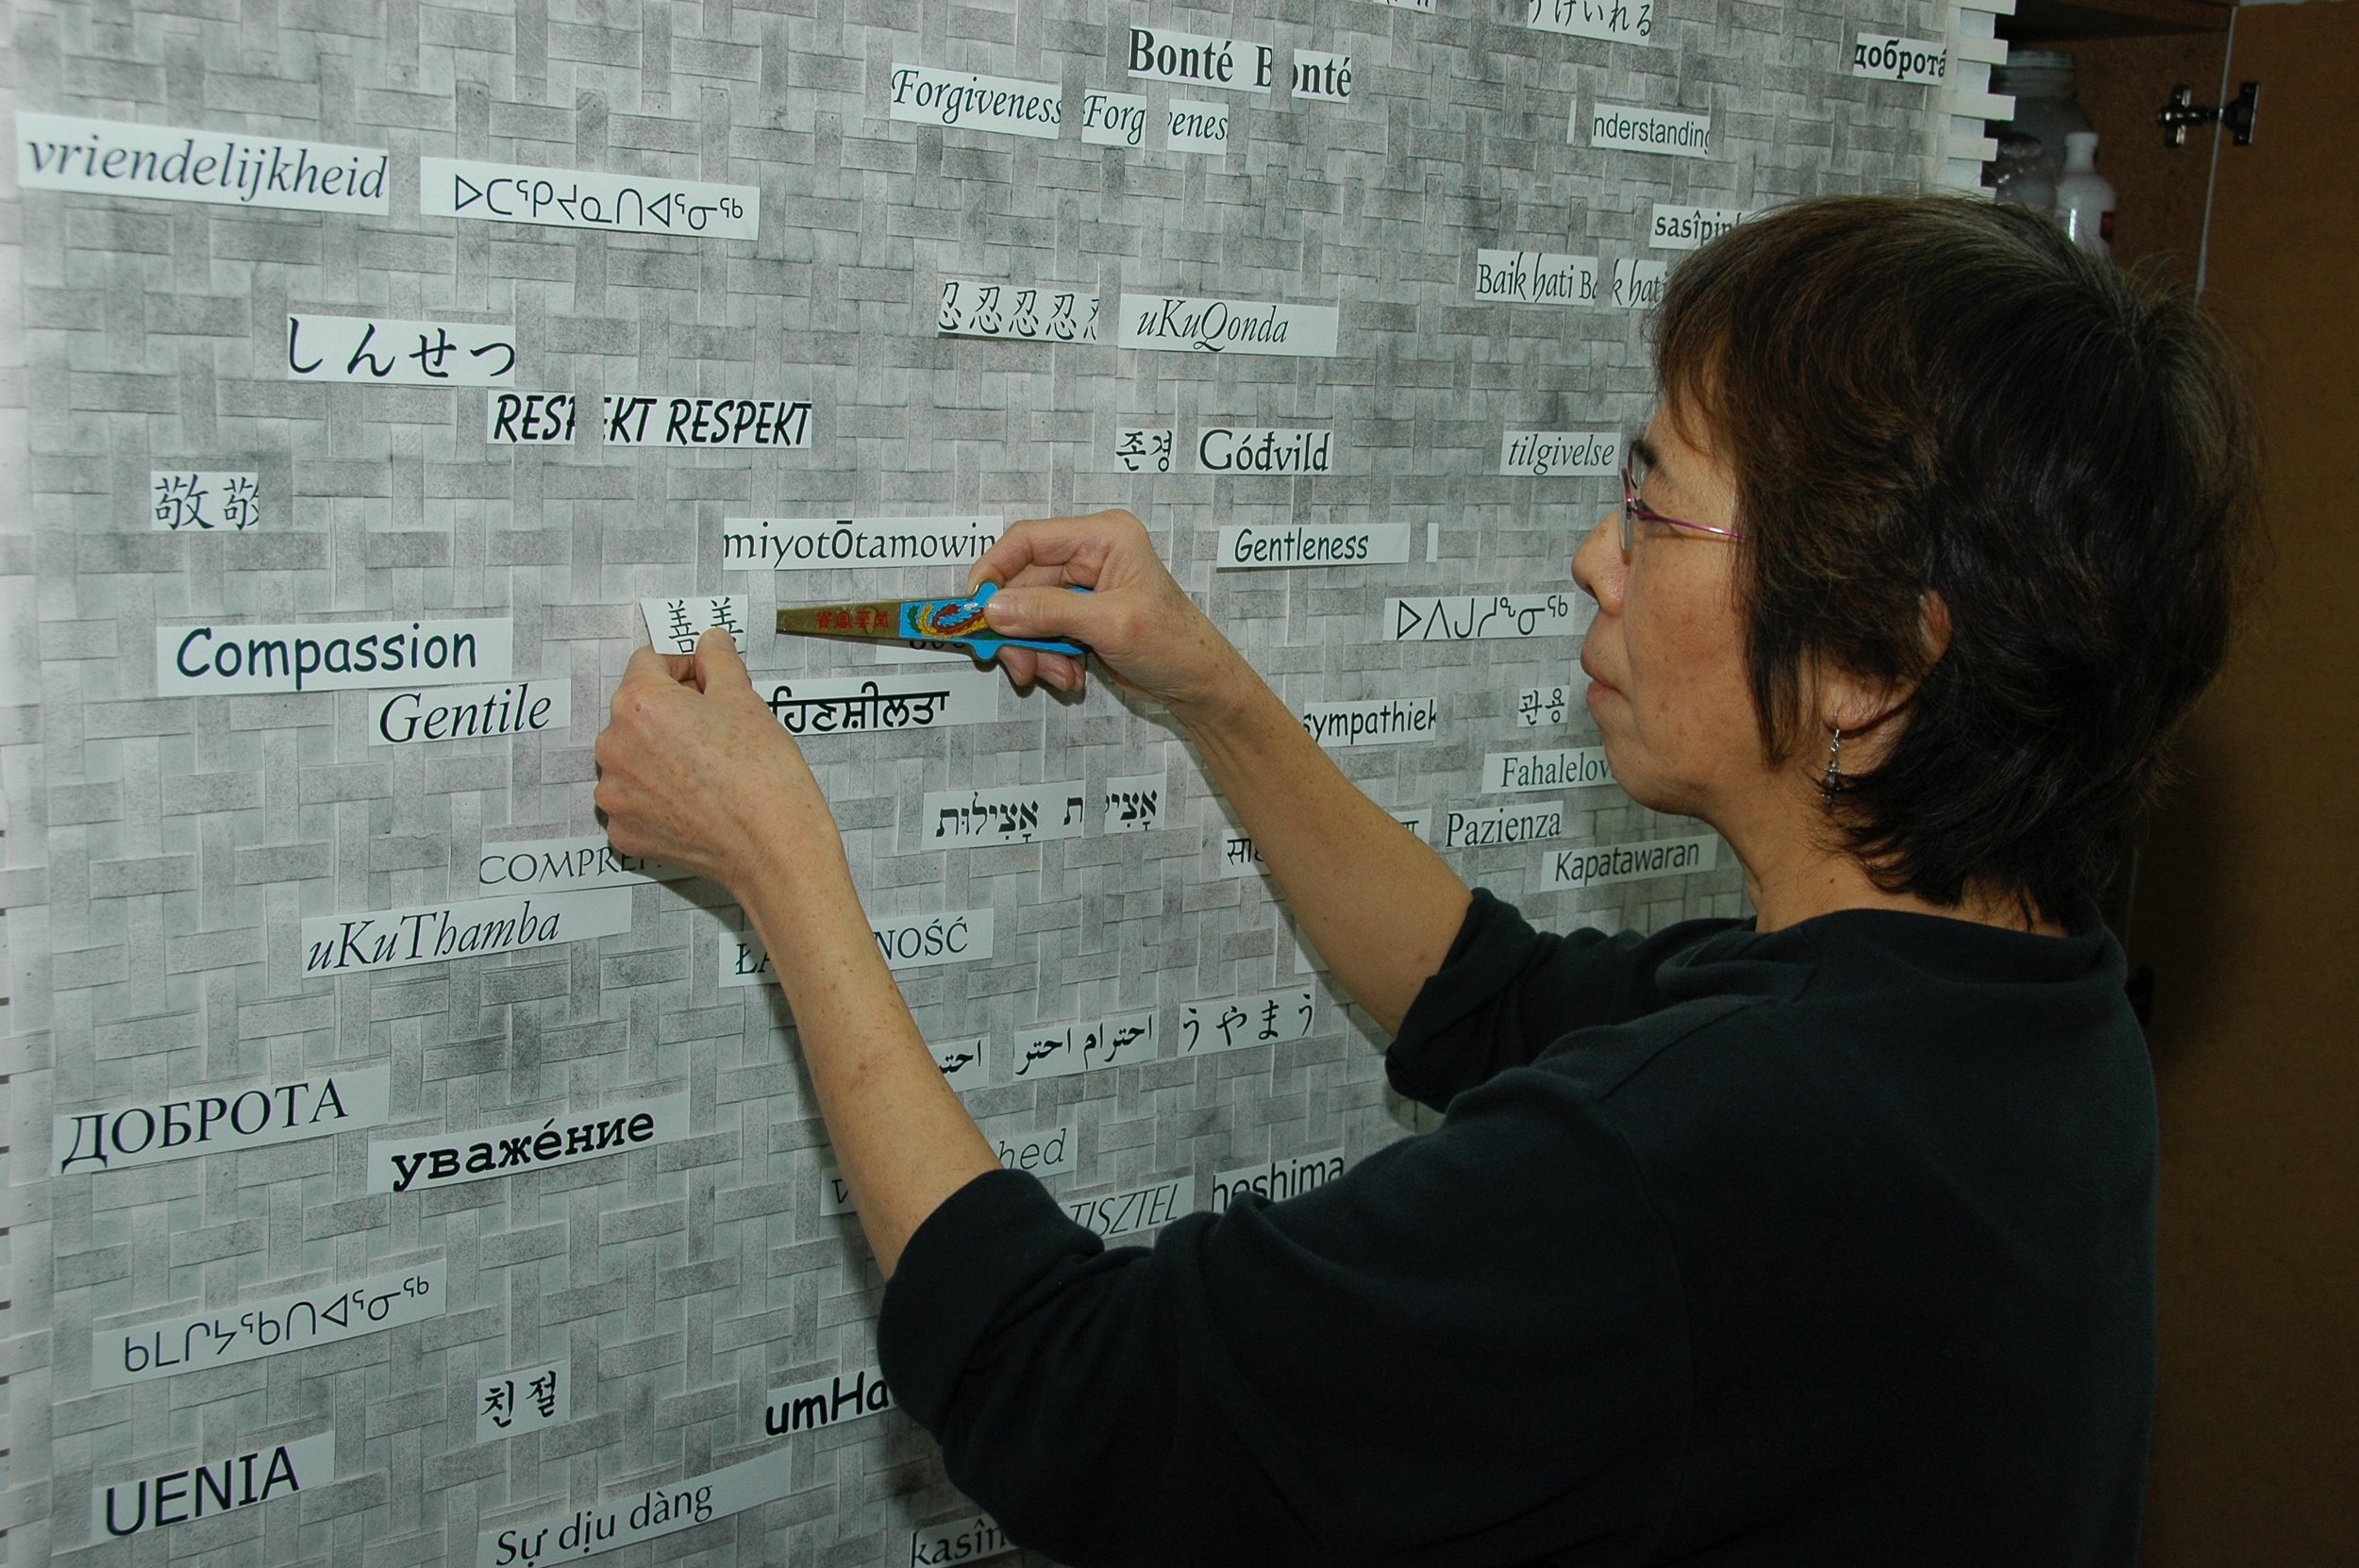 Bonté B nté
доброта́
Forgiveness Forg venes
nderstanding
vriendelijkheid
ᐅᑕᕿᔪᓇᑎᐊᕐᓂᖅ
Baik hati Ba k hati
忍 忍 忍
uKuQonda
しんせつ
RESP EKT RESPEKT
존경
Góđvild
tilgivelse
敬
miyotŌtamowin
Gentleness
善 善
Compassion
Gentile
ਹਿਣਸ਼ੀਲਤਾ
sympathiek
관용
Fahalelov
אֲצִילוּת
Pazienza
Kapatawaran
COMPRE
uKuThamba
NOŚĆ
احترام احتر
うやまう
ДОБРОТА
уваже́ние
hed
TISZTEL
heshima
ᑲᒪᒋᔭᖃᑎᐊᕐᓂᖅ
친절
umHa
UENIA
Sự dịu dàng
kasîn